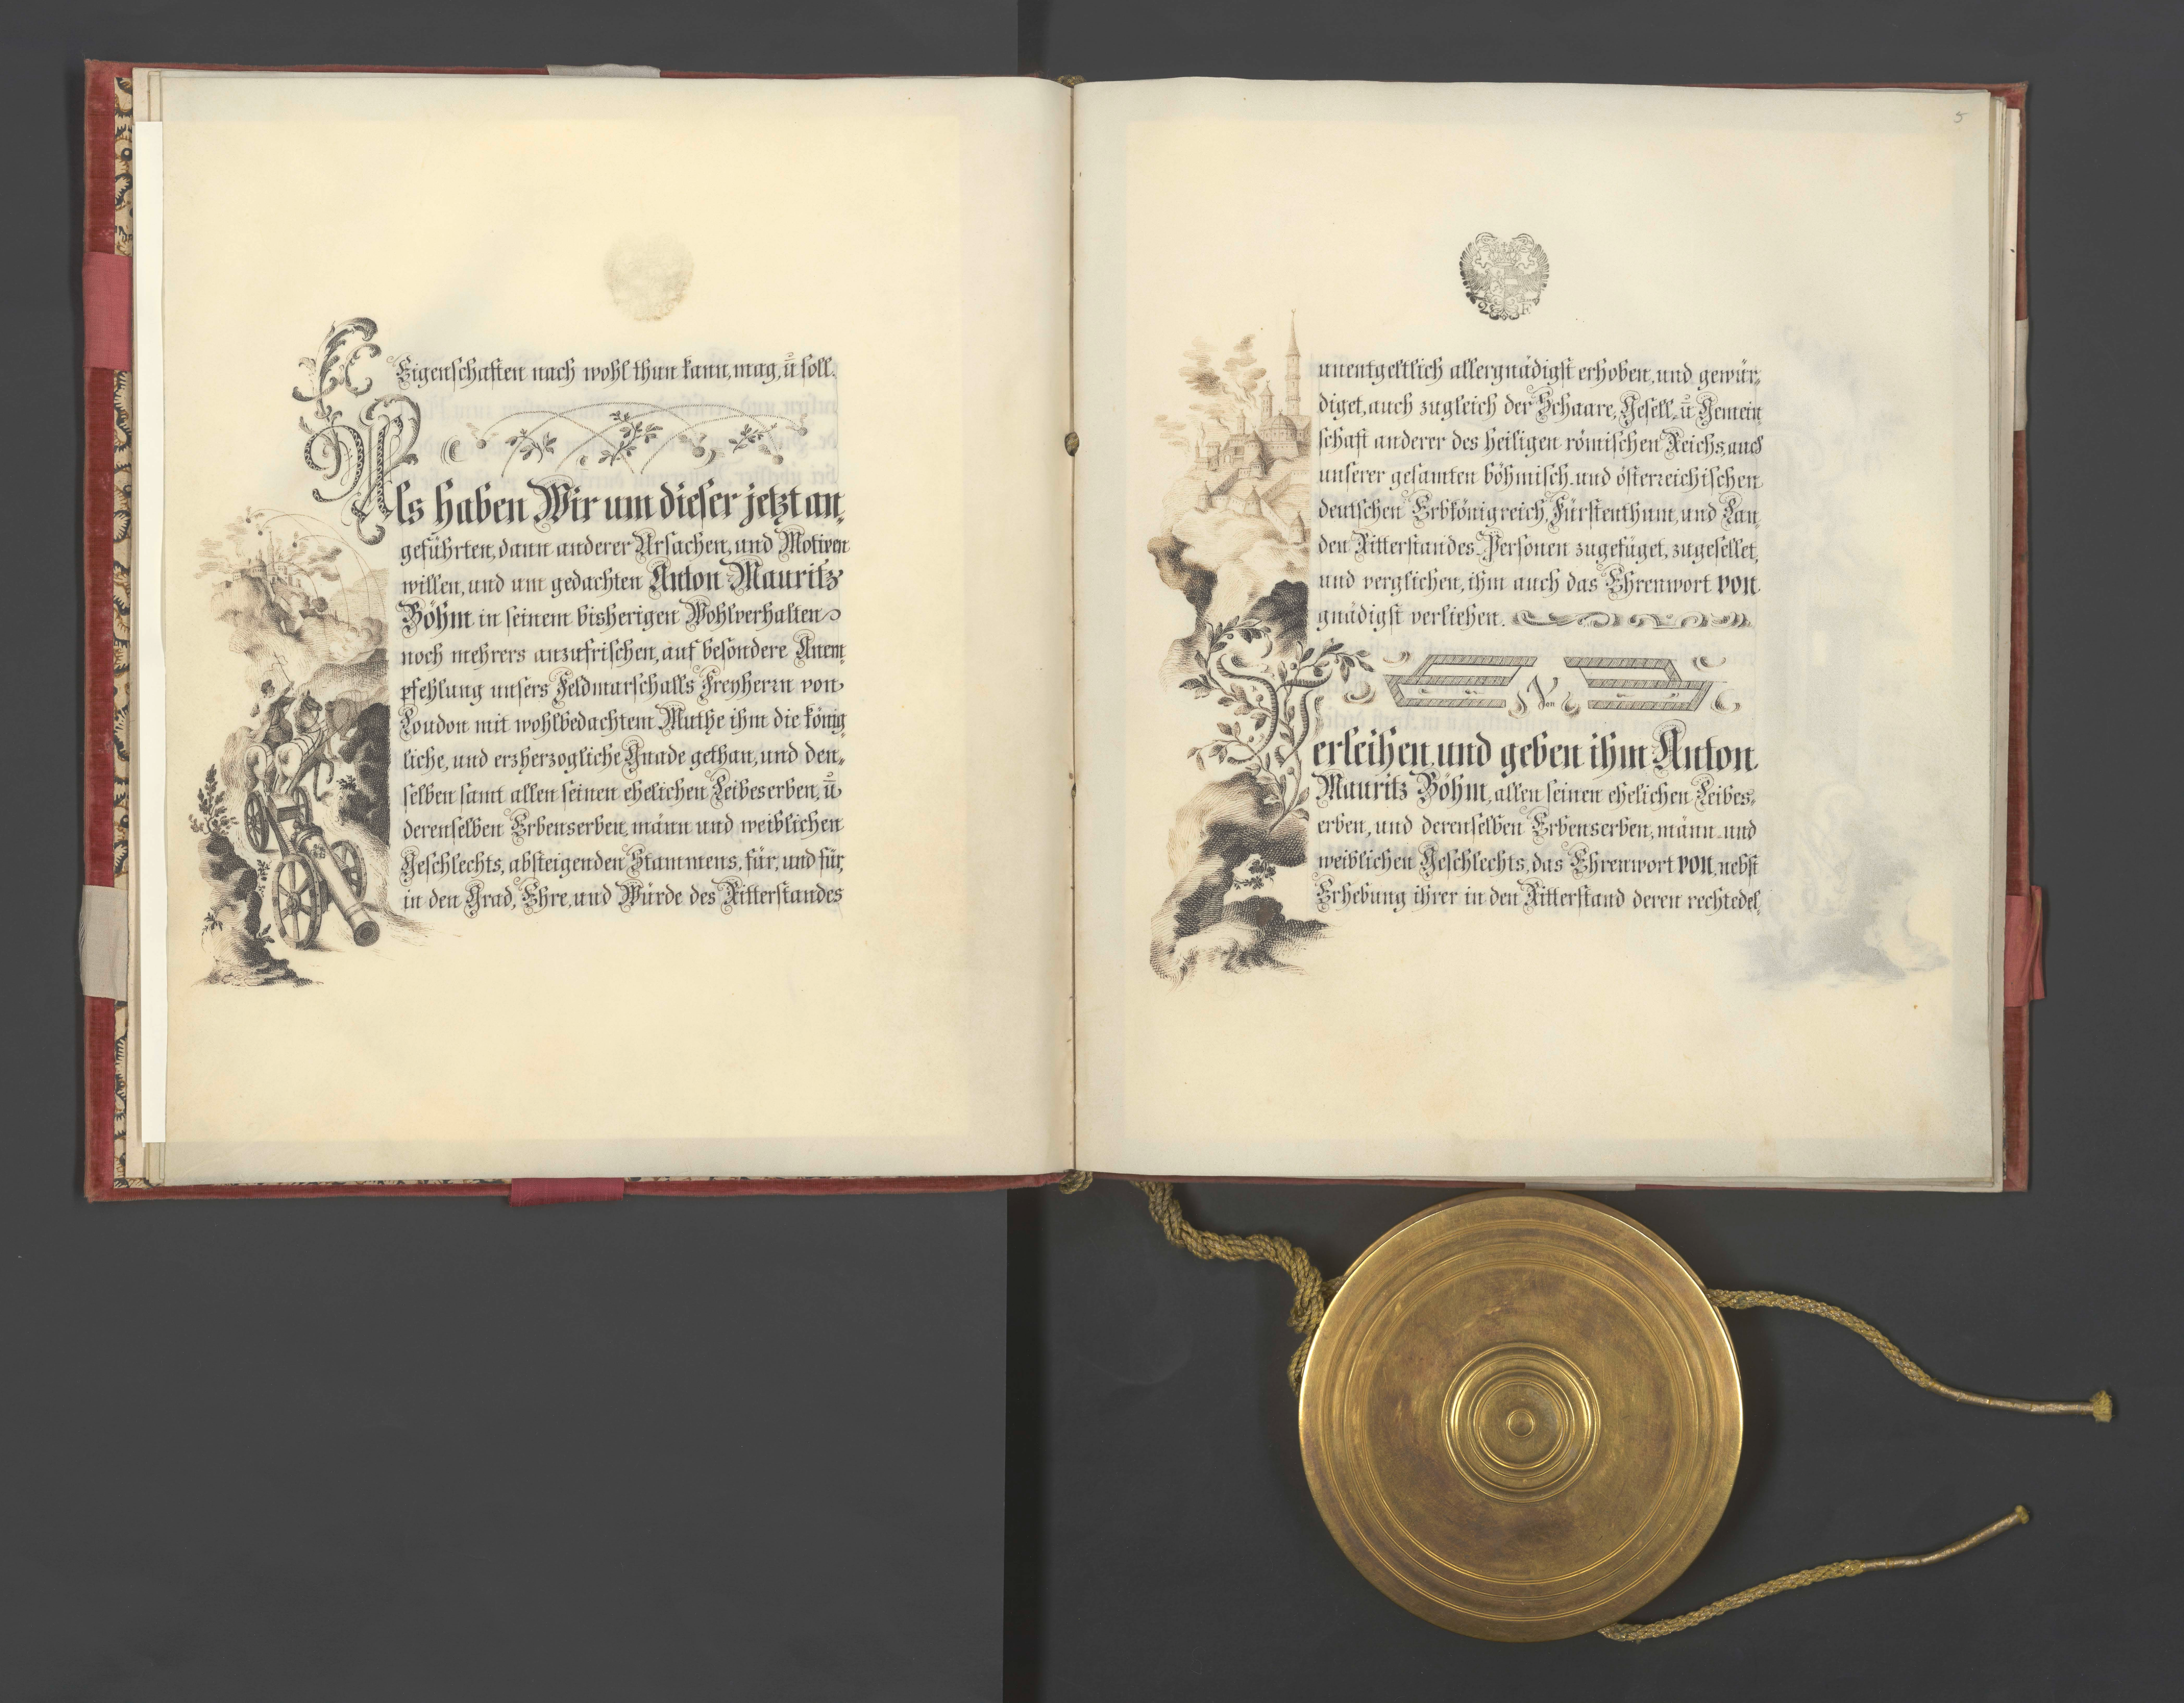 Eigenschaften nach wohl thun kann, mag, ū soll.
Als haben Wir um dieser jetzt an-
geführten, dann anderer Ursachen, und Motiven
willen, und um gedachten Anton Mauritz
Böhm in seinem bisherigen Wohlverhalten
noch mehrers anzufrischen, auf besondere Anem-
pfehlung unsers Feldmarschalls Freyherrn von
Loudon mit wohlbedachtem Muthe ihm die könig-
liche, und erzherzogliche Gnade gethan, und den-
selben samt allen seinen ehelichen Leibeserben, ū
derenselben Erbenserben, männ und weiblichen
Geschlechts, absteigenden Stammens, für, und für,
in den Grad, Ehre, und Würde des Ritterstandes
5
unentgeltlich allergnädigst erhoben, und gewür-
diget, auch zugleich der Schaare, Gesell- ū Gemein-
schaft anderer des heiligen römischen Reichs, auch
unserer gesamten böhmisch- und österreichischen
deutschen Erbkönigreich, Fürstenthum, und Lan-
den Ritterstandes-Personen zugefüget, zugesellet,
und verglichen, ihm auch das Ehrenwort von
gnädigst verliehen.
Von
Verleihen, und geben ihm Anton
Mauritz Böhm, allen seinen ehelichen Leibes-
erben, und derenselben Erbenserben, männ- und
weiblichen Geschlechts, das Ehrenwort von, nebst
Erhebung ihrer in den Ritterstand deren rechtedel-